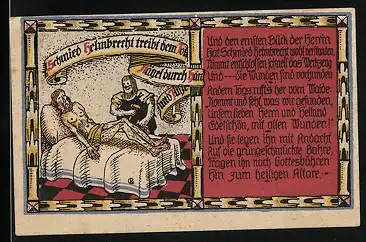 Schmied Helmbrecht treibt dem
Nägel durch
und
Und den ernsten Blick der Herrin
Hat Schmied Helmbrecht wohl verstanden,
Nimmt entschlossen schnell das Werkzeug
Und --- die Wunden sind vorhanden
Andern Tags ruft's her vom Walde:
"Kommt und seht, was wir gefunden,
Unsern lieben Herrn und Heiland
Edelschön, mit allen Wunden!"
Und sie legen ihn mit Andacht
Auf die grüngeschmückte Bahre,
Tragen ihn nach Gottesbühren
Hin zum heiligen Altare. -